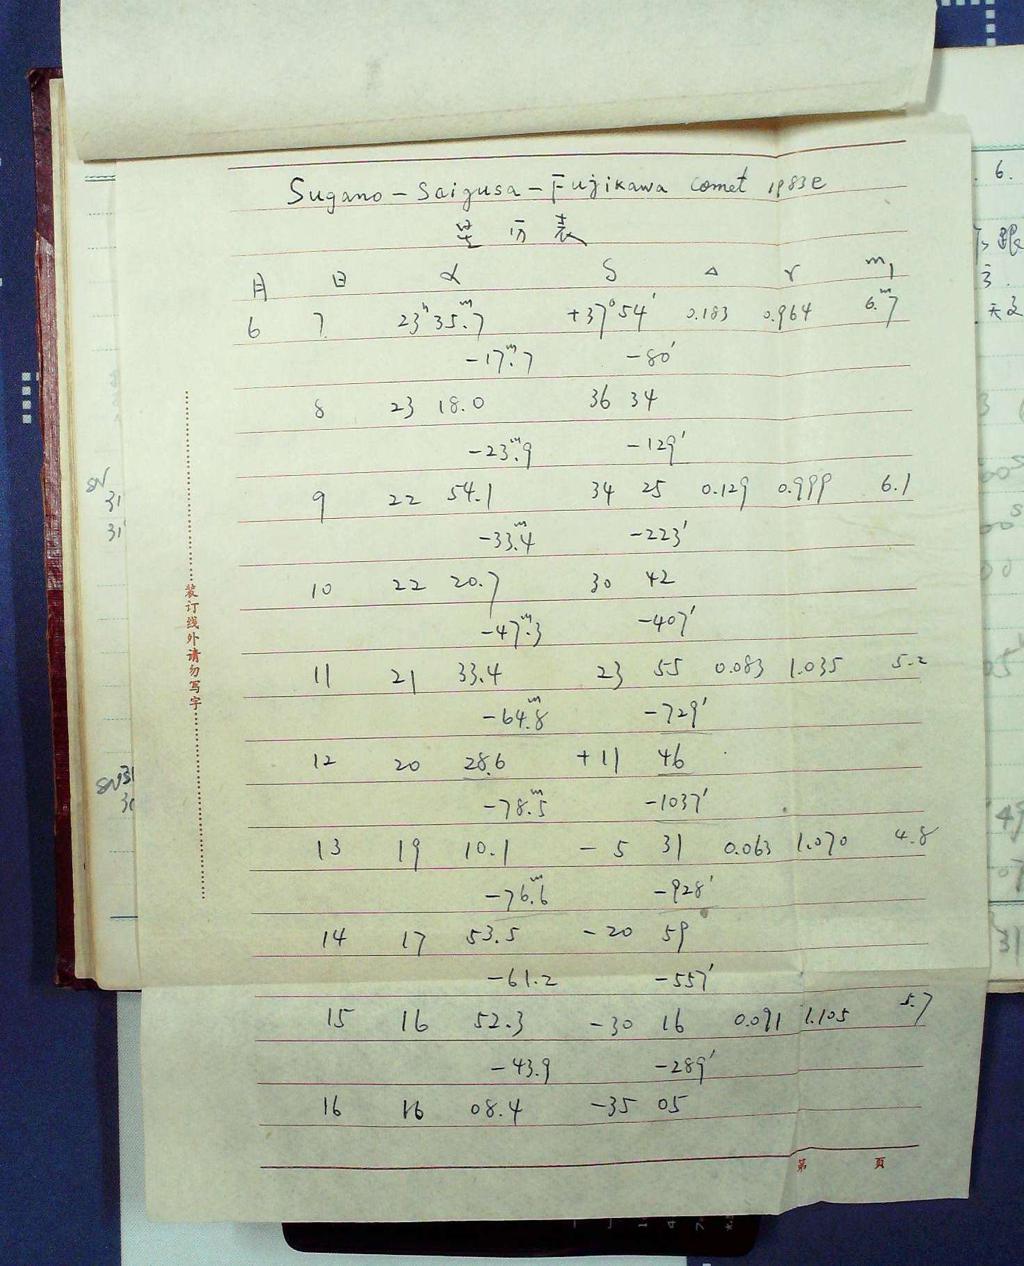 Sugano-Saigusa-Fujikawa comet 1983e
星历表
月 日 α δ Δ r m₁
6 7 23ʰ35ᵐ.7 +37°54′ 0.183 0.964 6ᵐ.7
-17ᵐ.7 -80′
8 23 18.0 36 34
-23ᵐ.9 -129′
9 22 54.1 34 25 0.129 0.999 6.1
-33ᵐ.4 -223′
10 22 20.7 30 42
-47ᵐ.3 -407′
11 21 33.4 23 55 0.083 1.035 5.2
-64ᵐ.8 -729′
12 20 28.6 +11 46
-78ᵐ.5 -1037′
13 19 10.1 -5 31 0.063 1.070 4.8
-76ᵐ.6 -928′
14 17 53.5 -20 59
-61.2 -557′
15 16 52.3 -30 16 0.091 1.105 5.7
-43.9 -289′
16 16 08.4 -35 05
第 页
装订线外请勿写字
SN
31
31
SN31
6.
天文
31